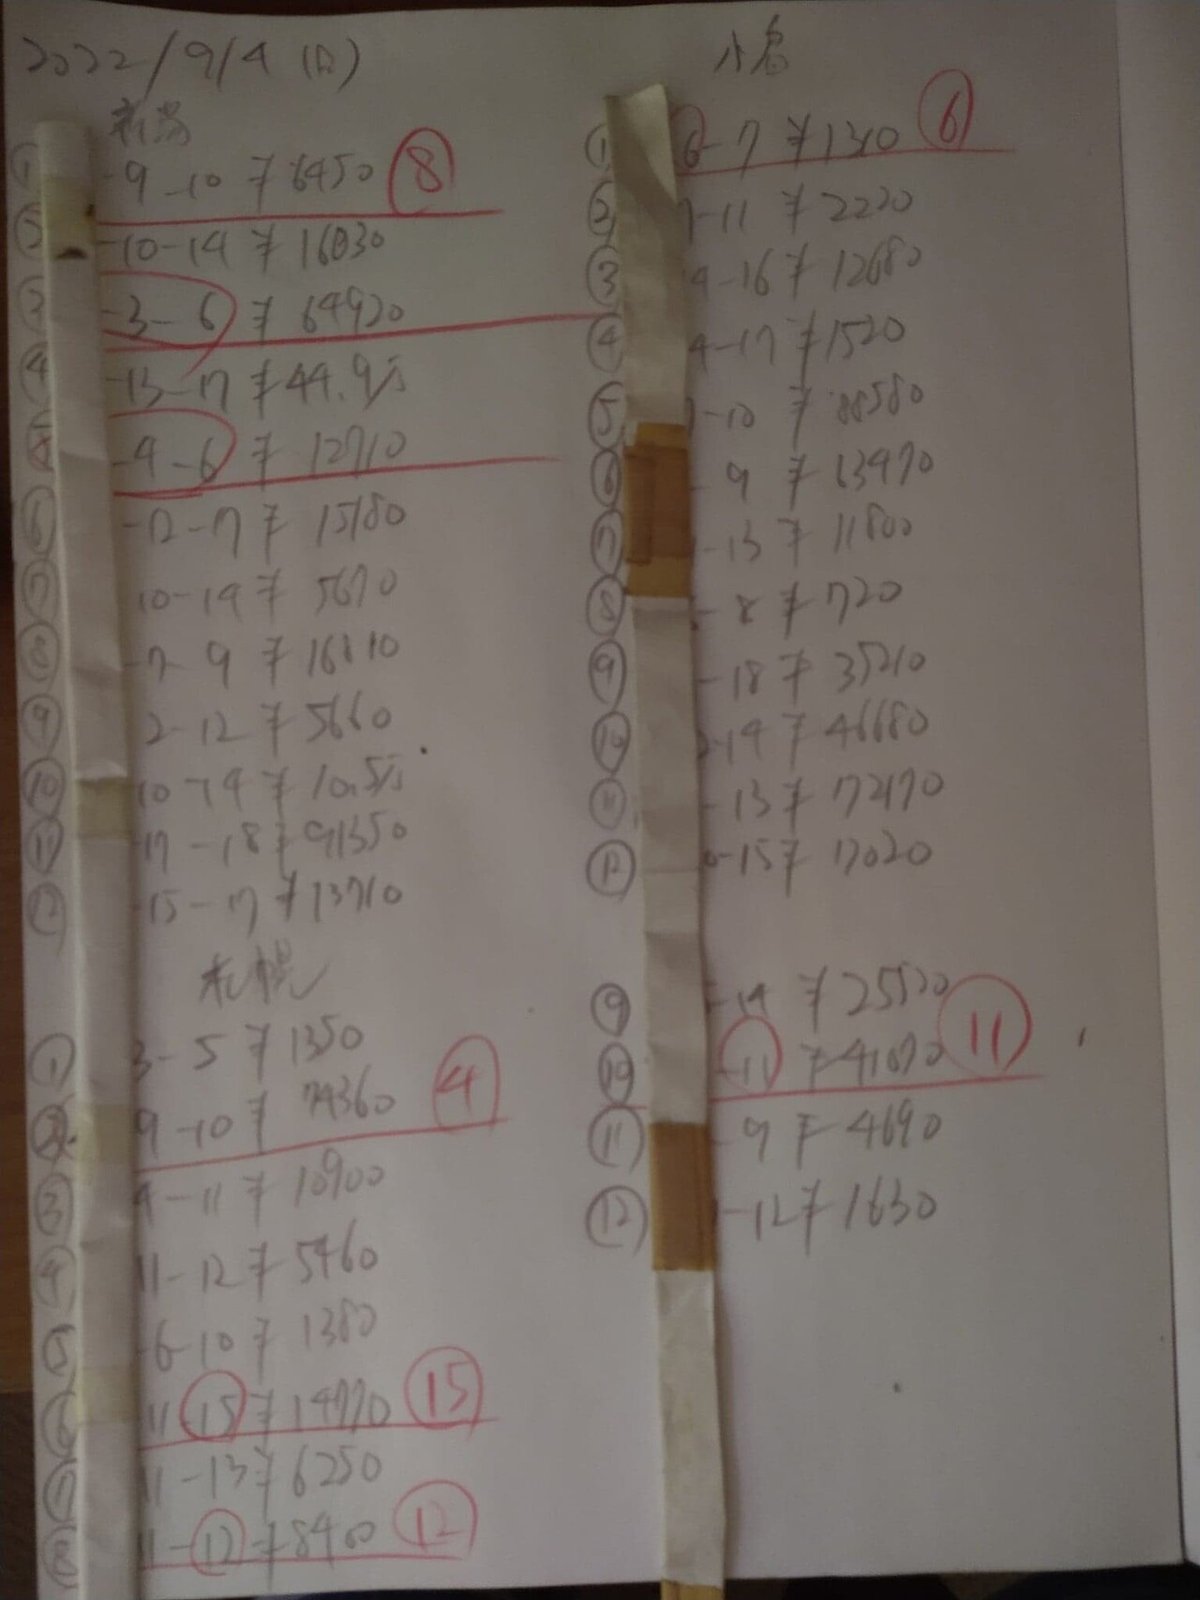 2022/9/4 (日)
新潟
① -9-10 ¥6450 ⑧
② -10-14 ¥16830
③ -3-6 ¥64920
④ -13-17 ¥44.9万
-4-6 ¥12710
⑥ -12-17 ¥15180
⑦ 10-14 ¥5670
⑧ -7-9 ¥16110
⑨ 2-12 ¥5660
⑩ 10-14 ¥10.5万
⑪ -17-18 ¥91350
⑫ -15-17 ¥13710
札幌
① 3-5 ¥1350
② 9-10 ¥74360 ④
③ 4-11 ¥10900
④ 11-12 ¥5460
⑤ -6-10 ¥1380
⑥ 11-15 ¥14770 ⑮
⑦ 11-13 ¥6250
⑧ 11-12 ¥8400 ⑫
小倉
① 6-7 ¥1310 ⑥
② -11 ¥2220
③ 4-16 ¥12680
④ 4-17 ¥1520
⑤ -10 ¥88580
⑥ -9 ¥13970
⑦ -13 ¥11800
⑧ -8 ¥720
⑨ -18 ¥35210
⑩ -14 ¥46680
⑪ -13 ¥72170
⑫ -15 ¥17020
⑨ -14 ¥25520
⑩ -11 ¥41070 ⑪
⑪ -9 ¥4690
⑫ -12 ¥1630